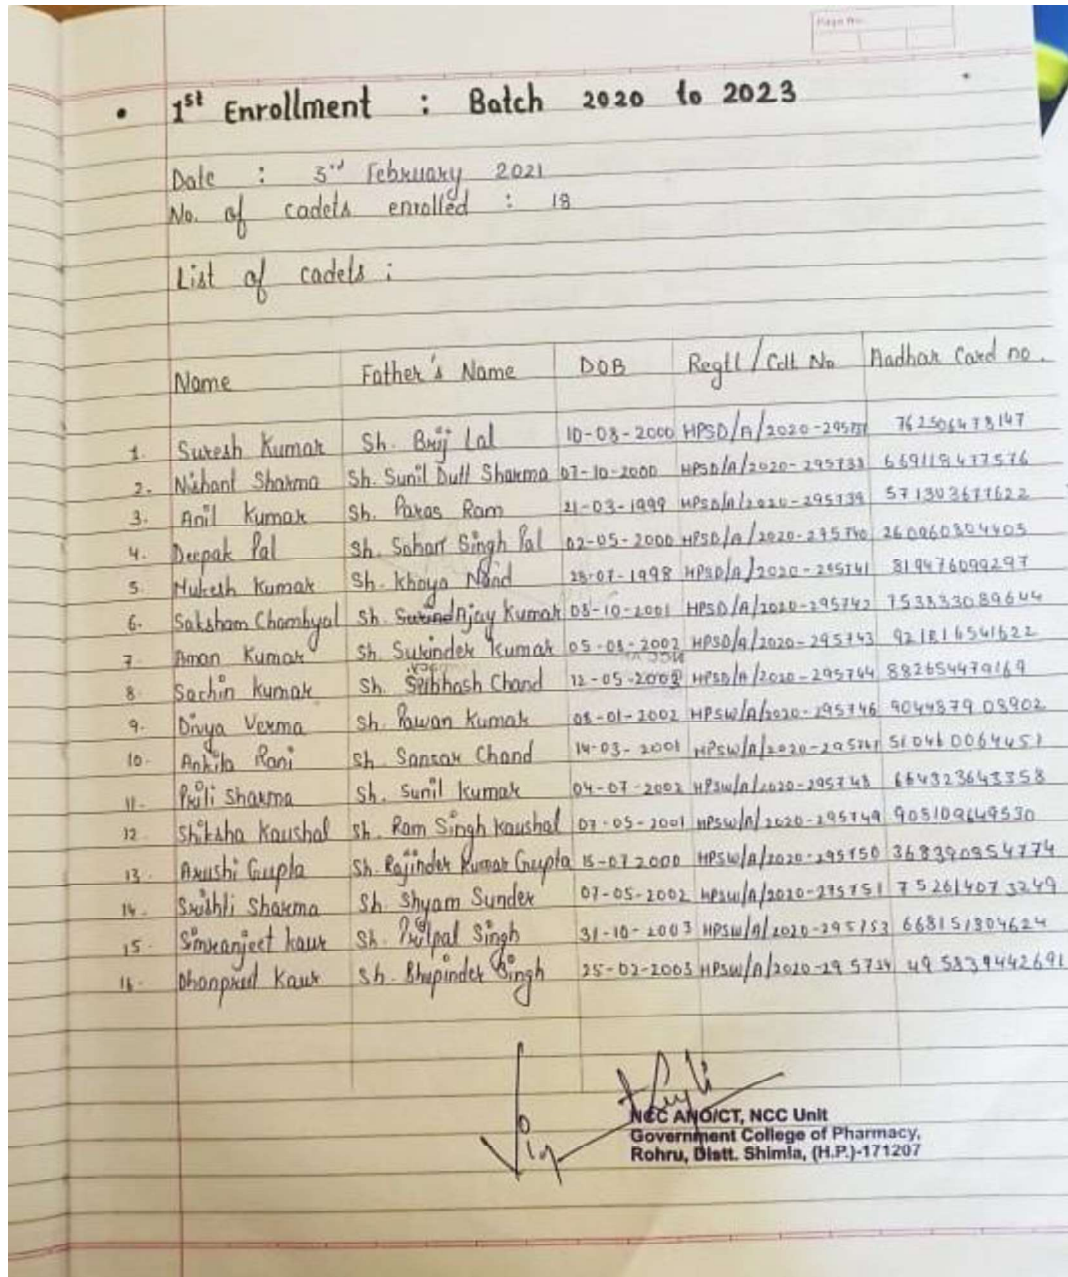 Page No.
• 1st Enrollment : Batch 2020 to 2023
Date : 3rd February 2021
No. of cadets enrolled : 18
List of cadets :
Name Father's Name DOB Regtl/Cdt No Aadhar Card no.
1. Suresh Kumar Sh. Brij Lal 10-08-2000
2. Nishant Sharma Sh. Sunil Dutt Sharma 07-10-2000 HPSD/A/2020-295738 669119477576
3. Anil Kumar Sh. Paras Ram 21-03-1999 HPSD/A/2020-295739 571303677622
4. Deepak Pal Singh Pal 02-05-2000 HPSD/A/2020-295740 260960804405
5. Mukesh Kumar Sh. 1998 HPSD/A/2020-295741 819476099297
6. Saksham Chambyal Sh. Ajay Kumar 08-10-2001 HPSD/A/2020-295742 753833089644
7. Aman Kumar Sh. Surinder Kumar 05-08-2002 HPSD/A/2020-295743
8. Sachin Kumar Sh. Subhash Chand HPSD/A/2020-295744 882654479169
9. Divya Verma Sh. Pawan Kumar 08-01-2002 HPSW/A/2020-295746 904487908902
10. Ankita Rani Sh. Sansar Chand 14-03-2001
11. Priti Sharma Sh. Sunil Kumar 04-07-2002 HPSW/A/2020-295748 664323643358
12. Shiksha Kaushal Sh. Ram Singh Kaushal 07-05-2001 HPSW/A/2020-295749 905109649530
13. Arushi Gupta Sh. Rajinder Kumar Gupta 15-07 2000 HPSW/A/2020-295750
14. Srishti Sharma Sh. Shyam Sunder 07-05-2002 HPSW/A/2020-295751 752614073249
15. Simranjeet Kaur Sh. Pritpal Singh 31-10-2003 HPSW/A/2020-295753 668151804624
16. Dhanpreet Kaur Sh. Bhupinder Singh 25-02-2003 HPSW/A/2020-295754 495839442691
NCC ANO/CT, NCC Unit
Government College of Pharmacy,
Rohru, Distt. Shimla, (H.P.)-171207